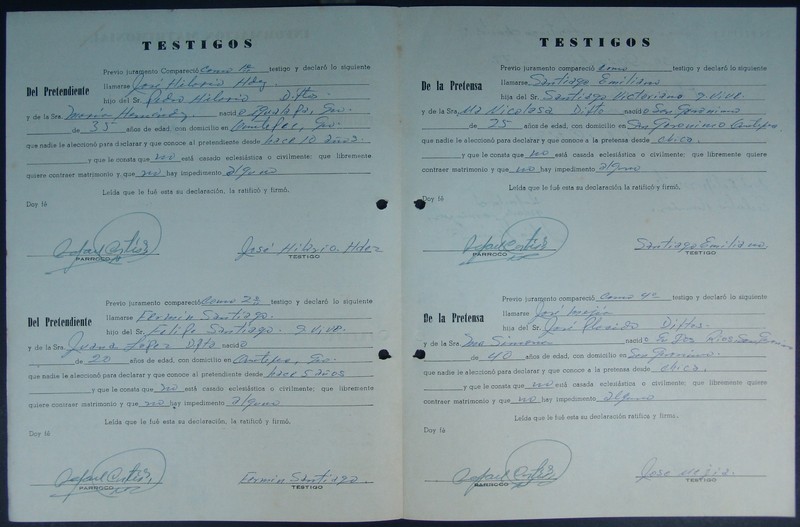 TESTIGOS
Previo juramento Compareció Como 1º testigo y declaró lo siguiente
Del Pretendiente llamarse José Hilario Hdez.
hijo del Sr. Pedro Hilario Difto
y de la Sra. María Hernández nacido Igualapa, Gro.
de 35 años de edad, con domicilio en Ometepec, Gro.
que nadie le aleccionó para declarar y que conoce al pretendiente desde hace 10 años.
y que le consta que no está casado eclesiástica o civilmente; que libremente
quiere contraer matrimonio y que no hay impedimento alguno
Leída que le fué esta su declaración, la ratificó y firmó.
Doy fé
Rafael Cortéz
PARROCO
José Hilario Hdez
TESTIGO
Previo juramento compareció Como 2º testigo y declaró lo siguiente
Del Pretendiente llamarse Fermin Santiago.
hijo del Sr. Felipe Santiago q. vive.
y de la Sra. Juana Lopez Dfta nacido
de 20 años de edad, con domicilio en Ometepec, Gro.
que nadie le aleccionó para declarar y que conoce al pretendiente desde hace 5 años
y que le consta que no está casado eclesiástica o civilmente; que libremente
quiere contraer matrimonio y que no hay impedimento alguno
Leída que le fué esta su declaración, la ratificó y firmó.
Doy fé
Rafael Cortéz
PARROCO
Fermin Santiago.
TESTIGO
TESTIGOS
Previo juramento compareció Como testigo y declaró lo siguiente
De la Pretensa llamarse Santiago Emiliano
hija del Sr. Santiago Victoriano q. vive.
y de la Sra. Ma Nicolasa Difto nacido San Geronimo
de 25 años de edad, con domicilio en San Geronimo
que nadie le aleccionó para declarar y que conoce a la pretensa desde chica.
y que le consta que no está casada eclesiástica o civilmente; que libremente quiere
contraer matrimonio y que no hay impedimento alguno
Leída que le fué esta su declaración la ratificó y firmó.
Doy fé
Rafael Cortéz
PARROCO
Santiago Emiliano
TESTIGO
Previo juramento compareció Como 4º testigo y declaró lo siguiente
De la Pretensa llamarse José Mejía
hija del Sr. José Plasido Diftos.
y de la Sra. Simona nacido
de 40 años de edad, con domicilio en San Geronimo.
que nadie le aleccionó para declarar y que conoce a la pretensa desde chica.
y que le consta que no está casada eclesiástica o civilmente; que libremente quiere
contraer matrimonio y que no hay impedimento alguno
Leída que le fué esta su declaración ratifica y firmó.
Doy fé
Rafael Cortéz
PARROCO
José Mejia.
TESTIGO